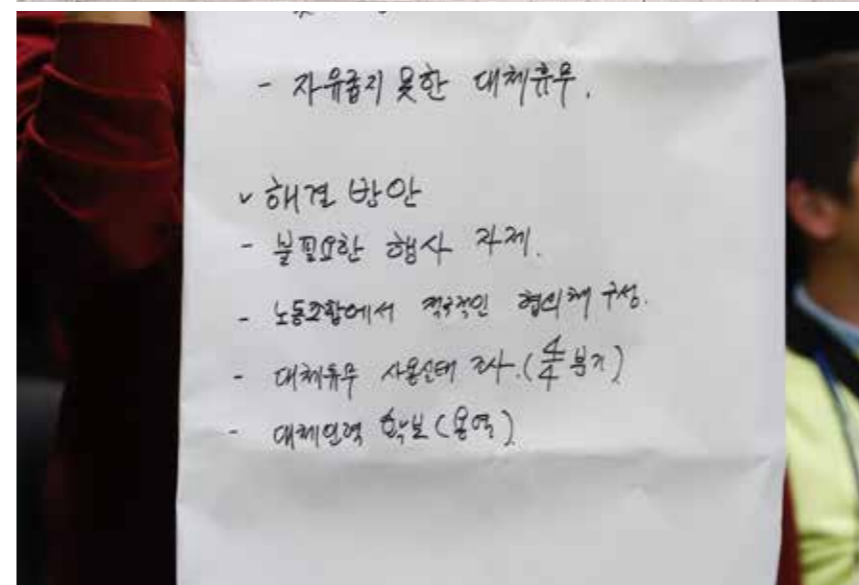 - 자유롭지 못한 대체휴무.
✓ 해결 방안
- 불필요한 행사 자제.
- 노동조합에서 적극적인 협의체 구성.
- 대체휴무 사용실태 조사.(4/4 분기)
- 대체인력 확보(용역)